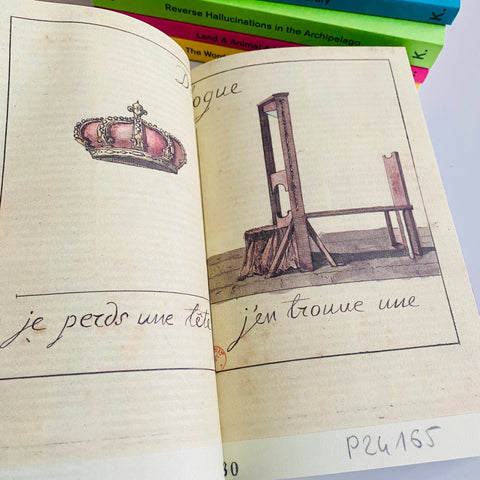 Reverse Hallucinations in the Archipelago
K.
Land & Animal
K.
The Word
Dialogue
je perds une tête
j'en trouve une
30
P24165